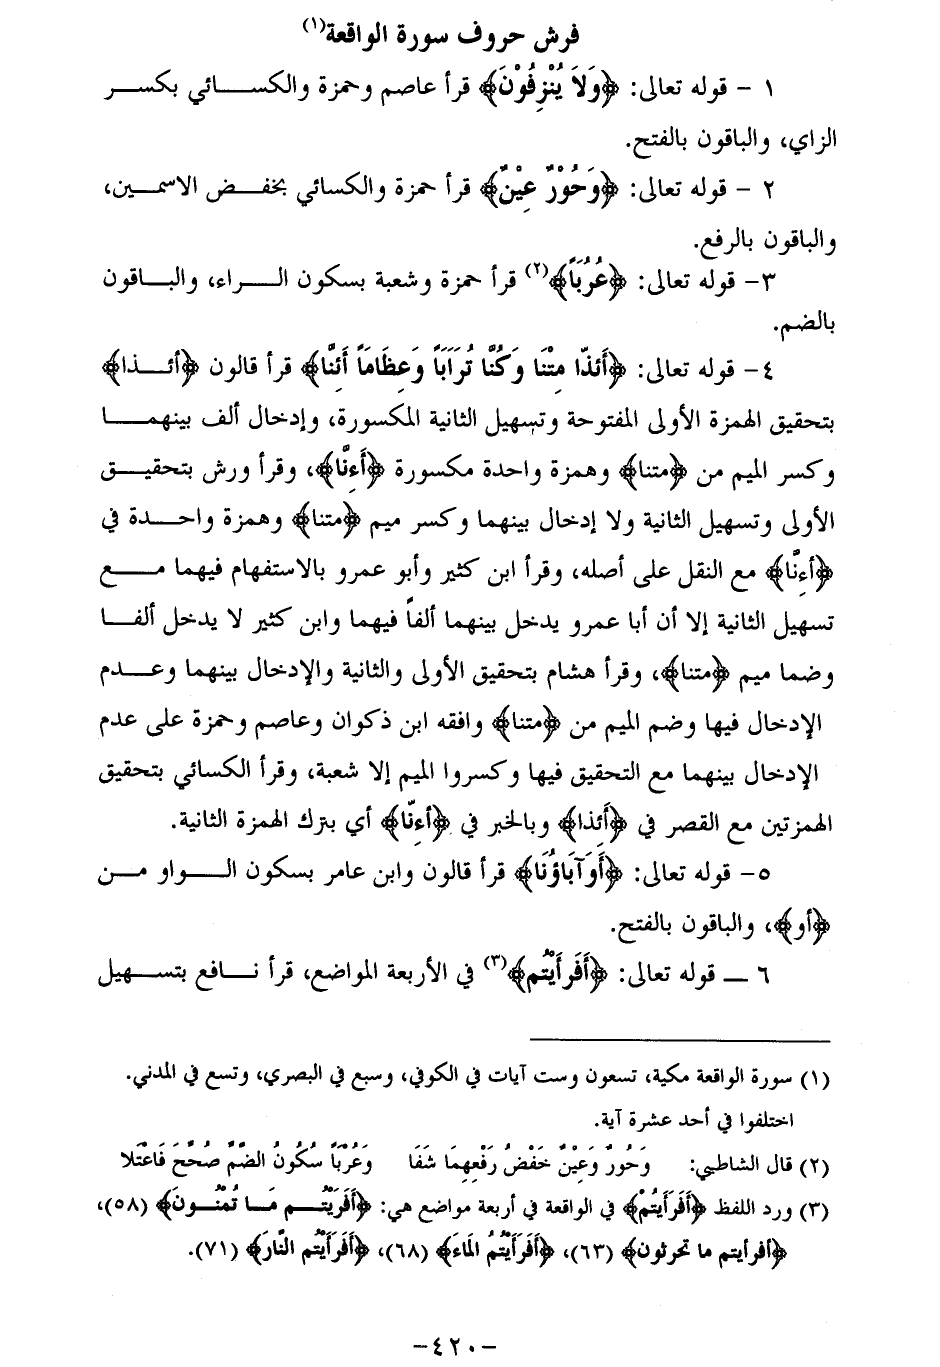 فرش حروف سورة الواقعة(١)
١ - قوله تعالى: ﴿وَلَا يُنْزِفُوْنَ﴾ قرأ عاصم وحمزة والكسائي بكسر
الزاي، والباقون بالفتح.
٢ - قوله تعالى: ﴿وَحُوْرٌ عِيْنٌ﴾ قرأ حمزة والكسائي بخفض الاسمين،
والباقون بالرفع.
٣- قوله تعالى: ﴿عُرُبَاً﴾(٢) قرأ حمزة وشعبة بسكون الراء، والباقون
بالضم.
٤- قوله تعالى: ﴿أَئذَا مِتْنَا وَكُنَّا تُرَابَاً وَعِظَامَاً أَئِنَّا﴾ قرأ قالون ﴿أئذا﴾
بتحقيق الهمزة الأولى المفتوحة وتسهيل الثانية المكسورة، وإدخال ألف بينهما
وكسر الميم من ﴿متنا﴾ وهمزة واحدة مكسورة ﴿أَءِنَّا﴾، وقرأ ورش بتحقيق
الأولى وتسهيل الثانية ولا إدخال بينهما وكسر ميم ﴿متنا﴾ وهمزة واحدة في
﴿أءِنَّا﴾ مع النقل على أصله، وقرأ ابن كثير وأبو عمرو بالاستفهام فيهما مع
تسهيل الثانية إلا أن أبا عمرو يدخل بينهما ألفاً فيهما وابن كثير لا يدخل ألفا
وضما ميم ﴿متنا﴾، وقرأ هشام بتحقيق الأولى والثانية والإدخال بينهما وعدم
الإدخال فيها وضم الميم من ﴿متنا﴾ وافقه ابن ذكوان وعاصم وحمزة على عدم
الإدخال بينهما مع التحقيق فيها وكسروا الميم إلا شعبة، وقرأ الكسائي بتحقيق
الهمزتين مع القصر في ﴿أَئِذا﴾ وبالخبر في ﴿أءِنّا﴾ أي بترك الهمزة الثانية.
٥- قوله تعالى: ﴿أَوَآبَاؤُنَا﴾ قرأ قالون وابن عامر بسكون الواو من
﴿أو﴾، والباقون بالفتح.
٦ ـ قوله تعالى: ﴿أَفَرَأَيْتُم﴾(٣) في الأربعة المواضع، قرأ نافع بتسهيل
(١) سورة الواقعة مكية، تسعون وست آيات في الكوفي، وسبع في البصري، وتسع في المدني.
اختلفوا في أحد عشرة آية.
(٢) قال الشاطبي: وَحُورٌ وَعِيْنٌ خَفْضُ رَفْعِهِمَا شَفَا وَعُرْبَاً سُكُونُ الضَّمِّ صُحِّحَ فَاعْتَلا
(٣) ورد اللفظ ﴿أَفَرَأَيتُمْ﴾ في الواقعة في أربعة مواضع هي: ﴿أَفَرَيْتُم مَا تُمْنُونَ﴾ (٥٨)،
﴿أفرأيتم ما تحرثون﴾ (٦٣)، ﴿أَفَرَأَيْتُمُ المَاءَ﴾ (٦٨)، ﴿أَفَرَأَيْتُم النَّارَ﴾ (٧١).
-٤٢٠-